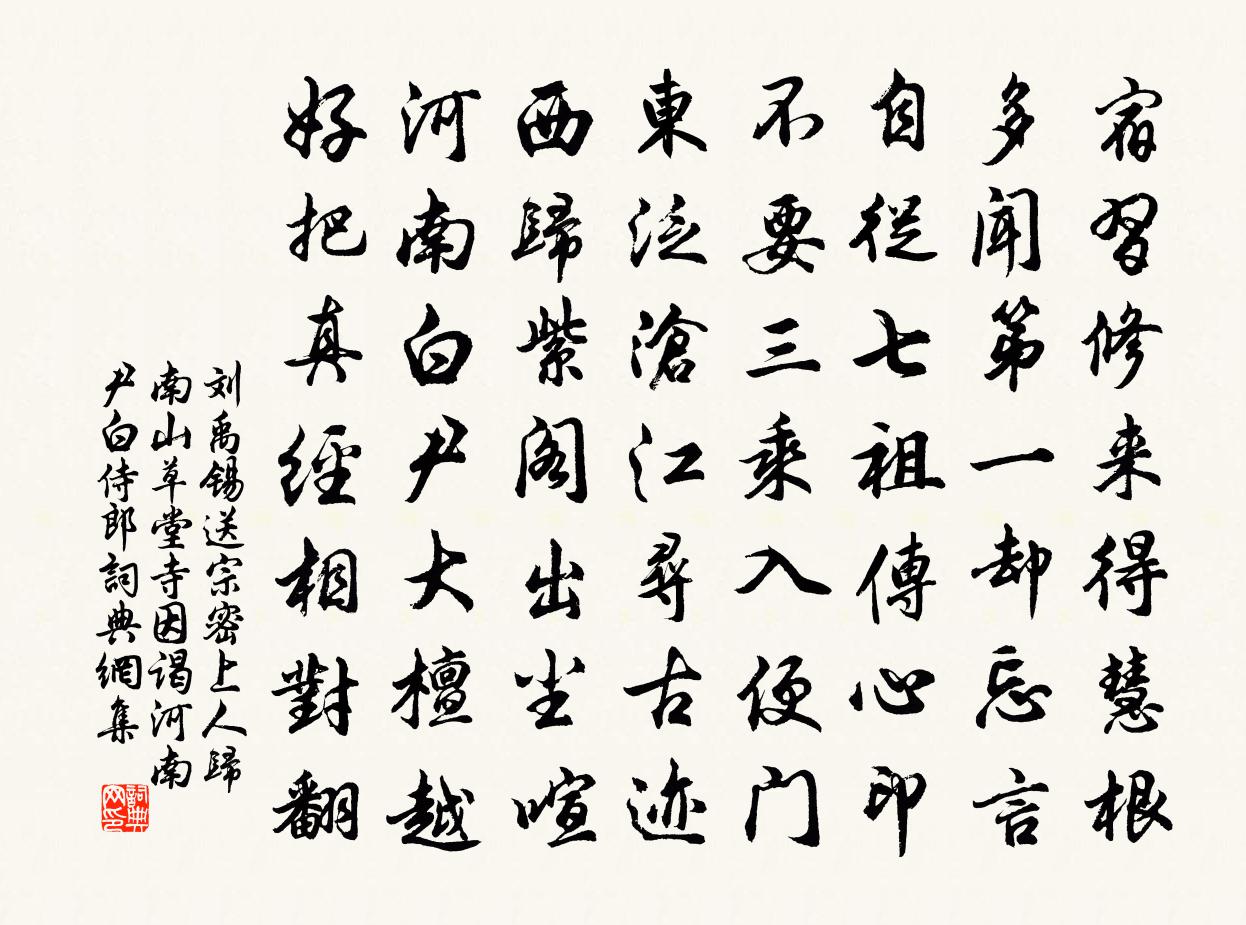 宿習修来得慧根
多聞第一却忘言
自從七祖傳心印
不要三乘入便门
東泛滄江尋古迹
西歸紫阁出尘喧
河南白尹大檀越
好把真經相對翻
刘禹锡送宗密上人歸
南山草堂寺因谒河南
尹白侍郎詞典網集
詞典网印